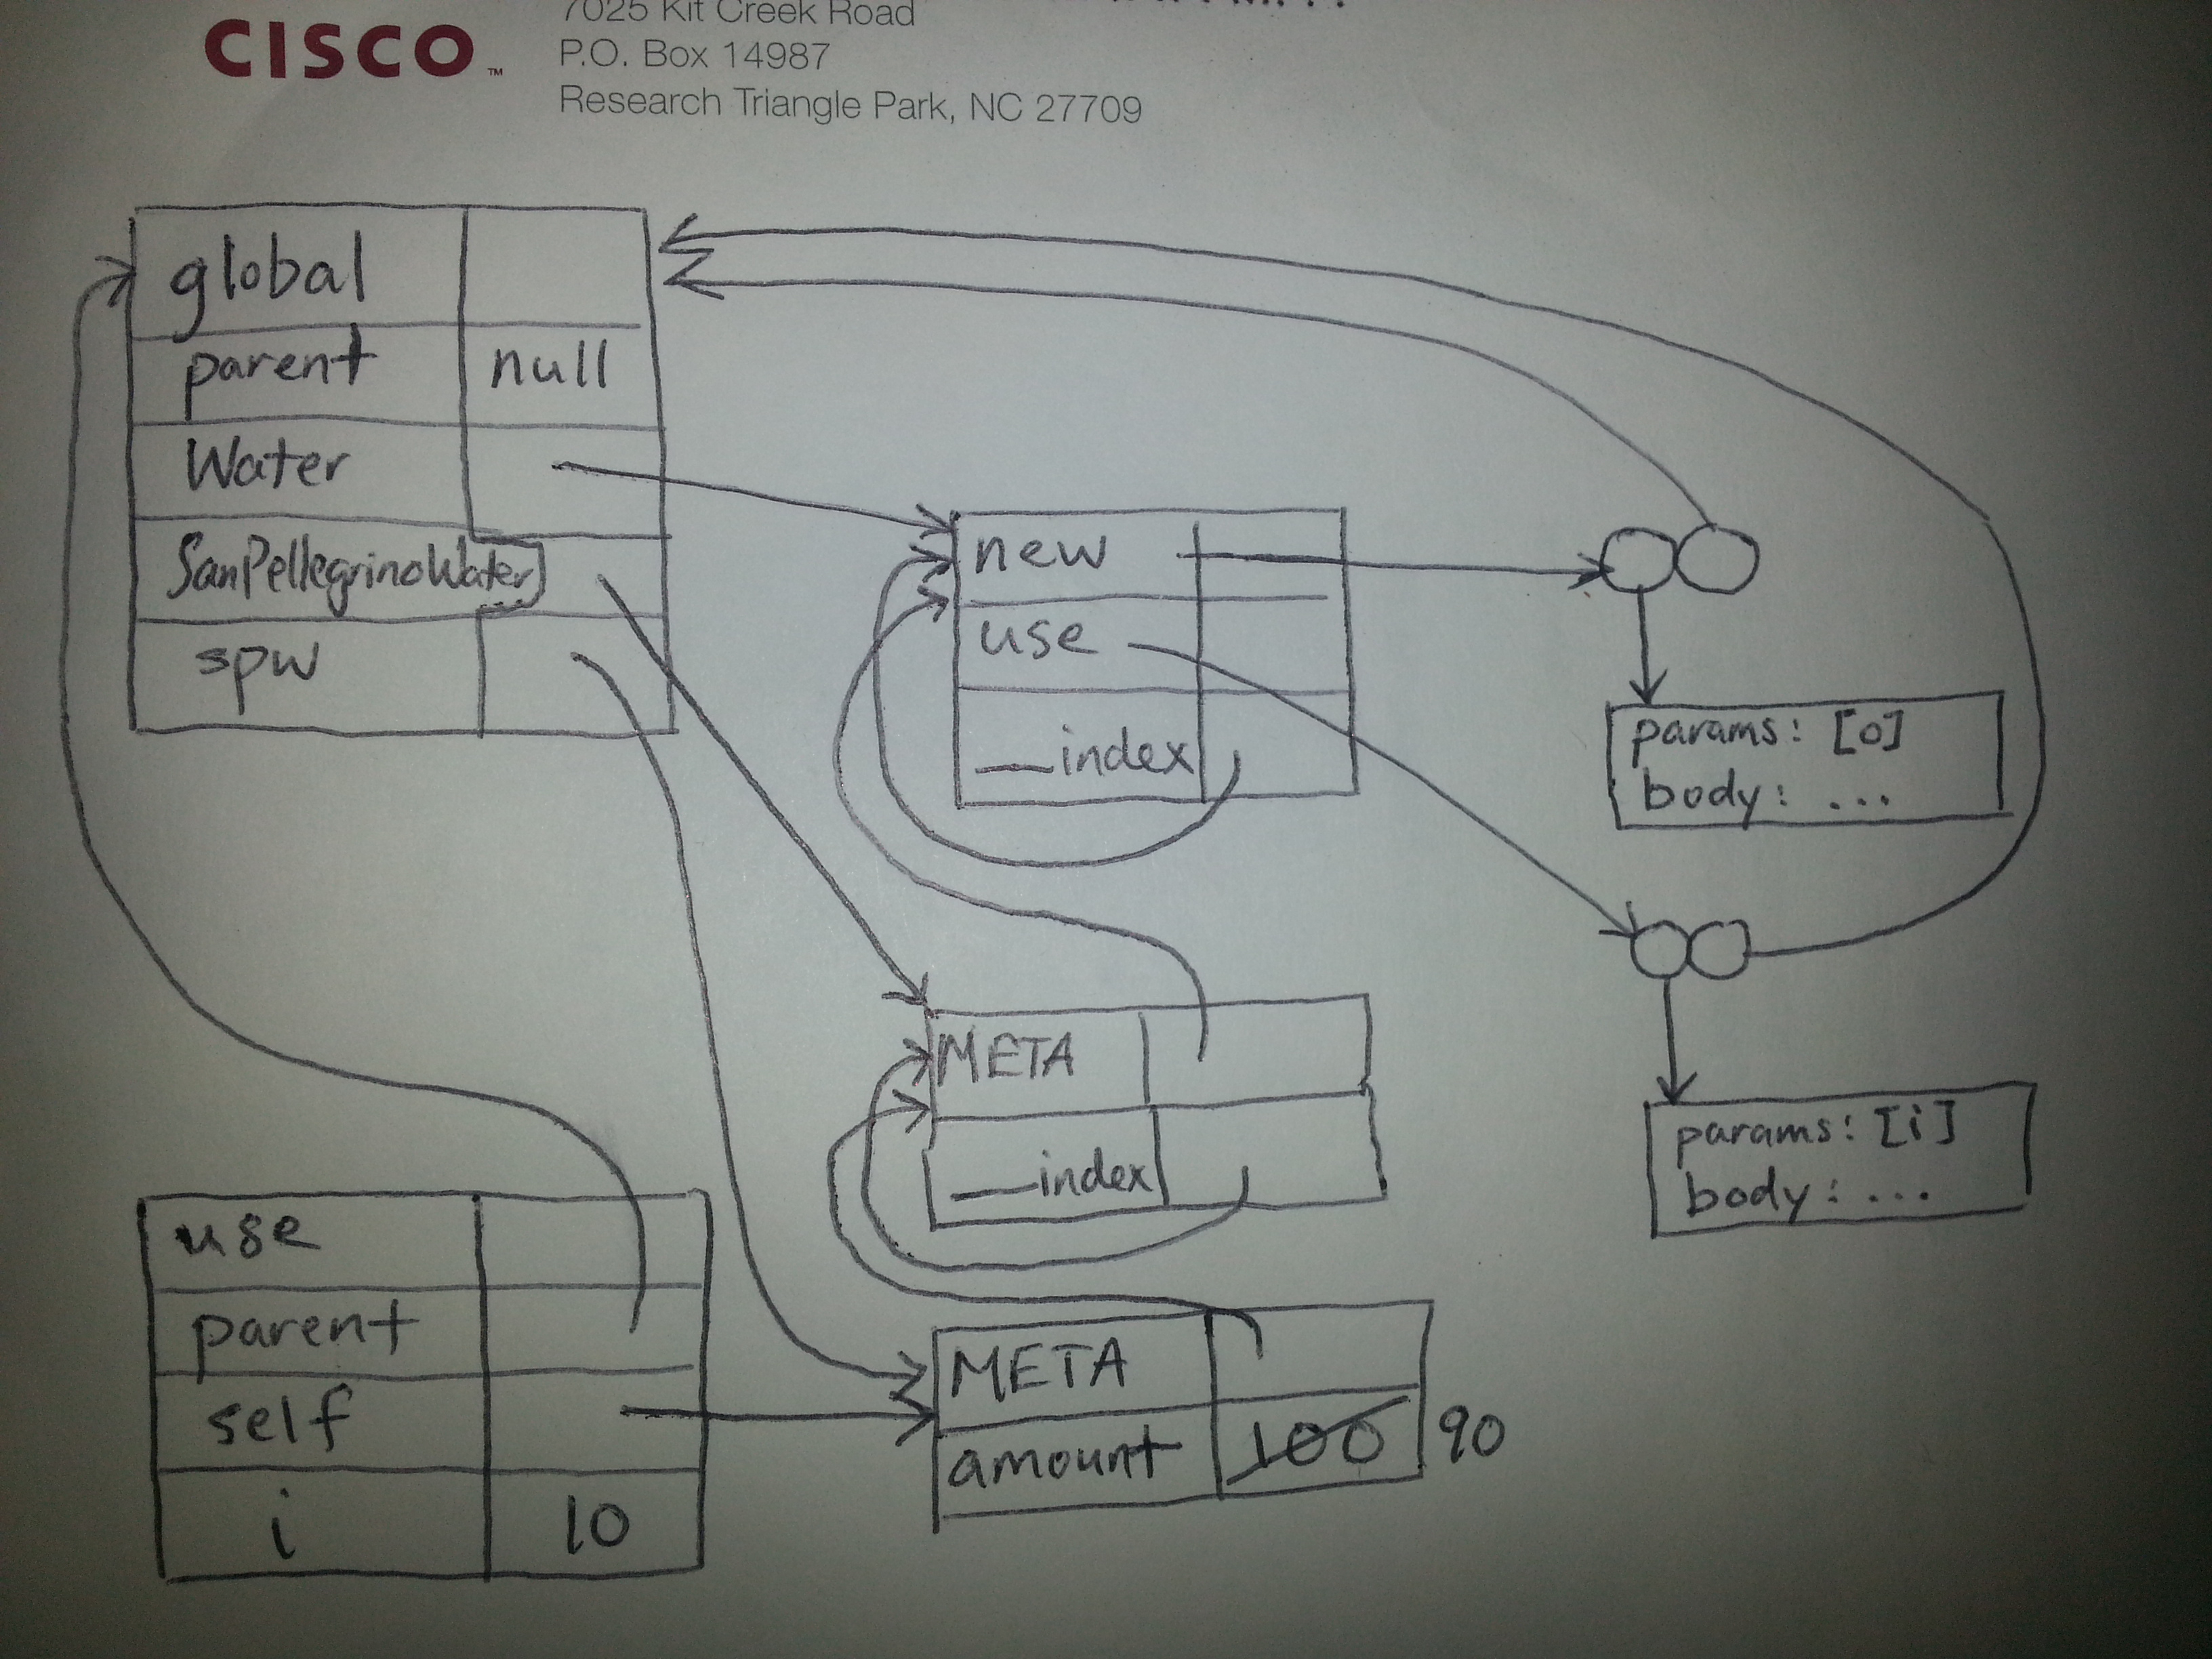 CISCO™
7025 Kit Creek Road
P.O. Box 14987
Research Triangle Park, NC 27709
global
parent null
Water
SanPellegrinoWater
spw
new
use
__index
params: [o]
body: ...
META
__index
params: [i]
body: ...
use
parent
self
i 10
META
amount 100 90